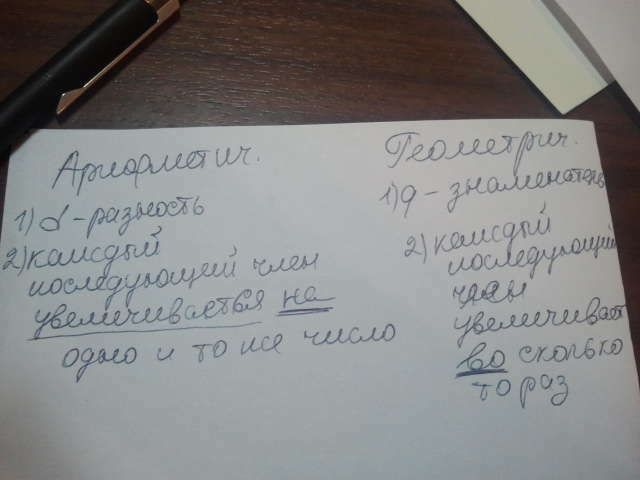 Арифметич.
1) d - разность
2) каждый
последующий член
увеличивается на
одно и то же число
Геометрич.
1) q - знаменатель
2) каждый
последующий
член
увеличивает
во сколько
то раз